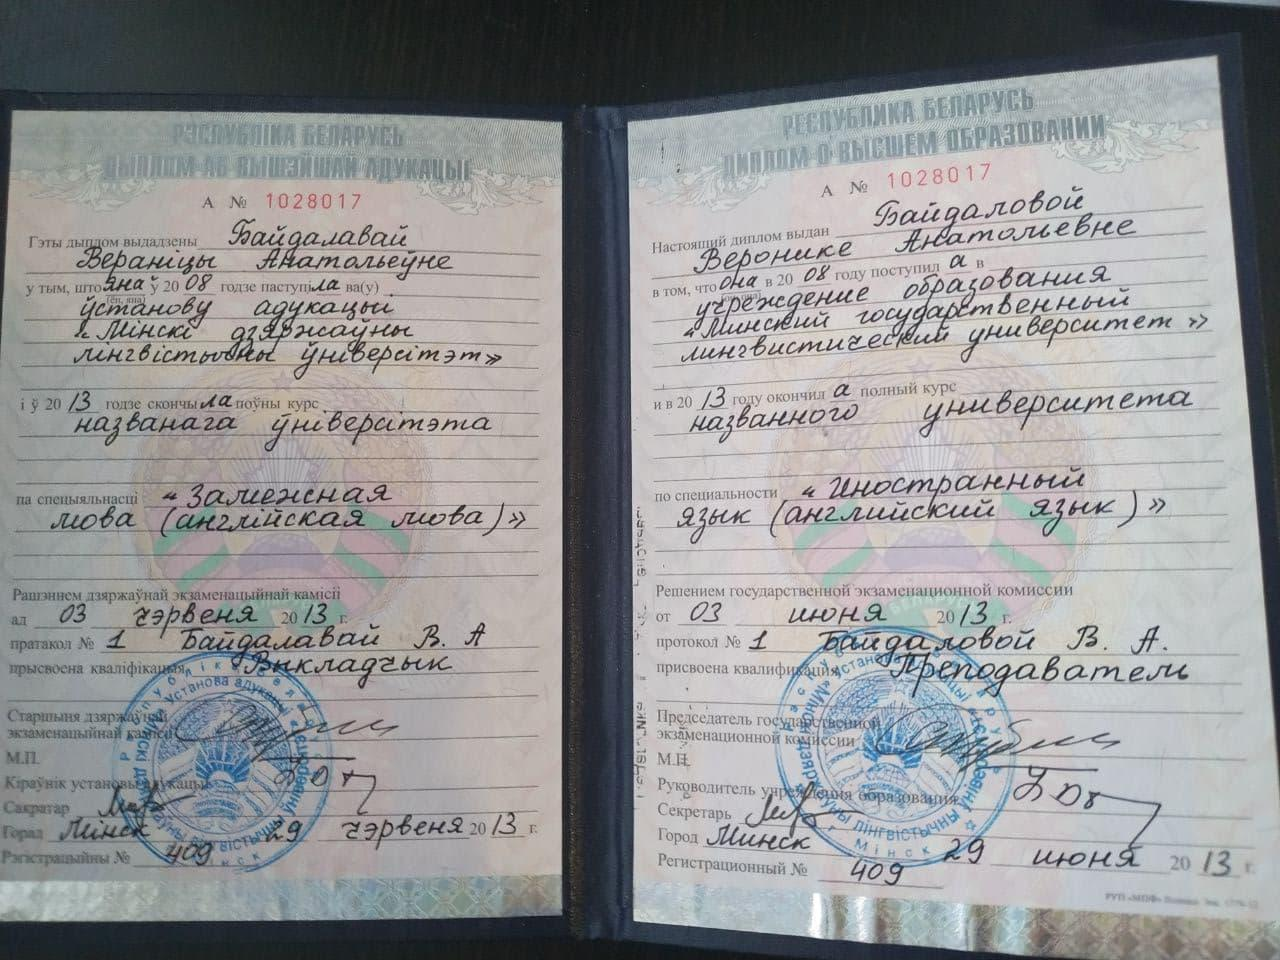 РЭСПУБЛІКА БЕЛАРУСЬ
ДЫПЛОМ АБ ВЫШЭЙШАЙ АДУКАЦЫІ
А № 1028017
Гэты дыплом выдадзены Байдалавай
Вераніцы Анатольеўне
у тым, што яна ў 2008 годзе паступіла ва(у)
(ён, яна)
ўстанову адукацыі
«Мінскі дзяржаўны
лінгвістычны ўніверсітэт»
і ў 2013 годзе скончыла поўны курс
названага ўніверсітэта
па спецыяльнасці «Замежная
мова (английская мова)»
Рашэннем дзяржаўнай экзаменацыйнай камісіі
ад 03 чэрвеня 2013 г.
пратакол № 1 Байдалавай В. А
прысвоена кваліфікацыя Выкладчык
Старшыня дзяржаўнай
экзаменацыйнай камісіі
М.П.
Кіраўнік установы адукацыі
Сакратар
Горад Мінск 29 чэрвеня 2013 г.
Рэгістрацыйны № 409
РЕСПУБЛИКА БЕЛАРУСЬ
ДИПЛОМ О ВЫСШЕМ ОБРАЗОВАНИИ
А № 1028017
Настоящий диплом выдан Байдаловой
Веронике Анатольевне
в том, что она в 2008 году поступила в
учреждение образования
«Минский государственный
лингвистический университет»
и в 2013 году окончила полный курс
названного университета
по специальности «Иностранный
язык (английский язык)»
Решением государственной экзаменационной комиссии
от 03 июня 2013 г.
протокол № 1 Байдаловой В. А.
присвоена квалификация Преподаватель
Председатель государственной
экзаменационной комиссии
М.П.
Руководитель учреждения образования
Секретарь
Город Минск 29 июня 2013 г.
Регистрационный № 409